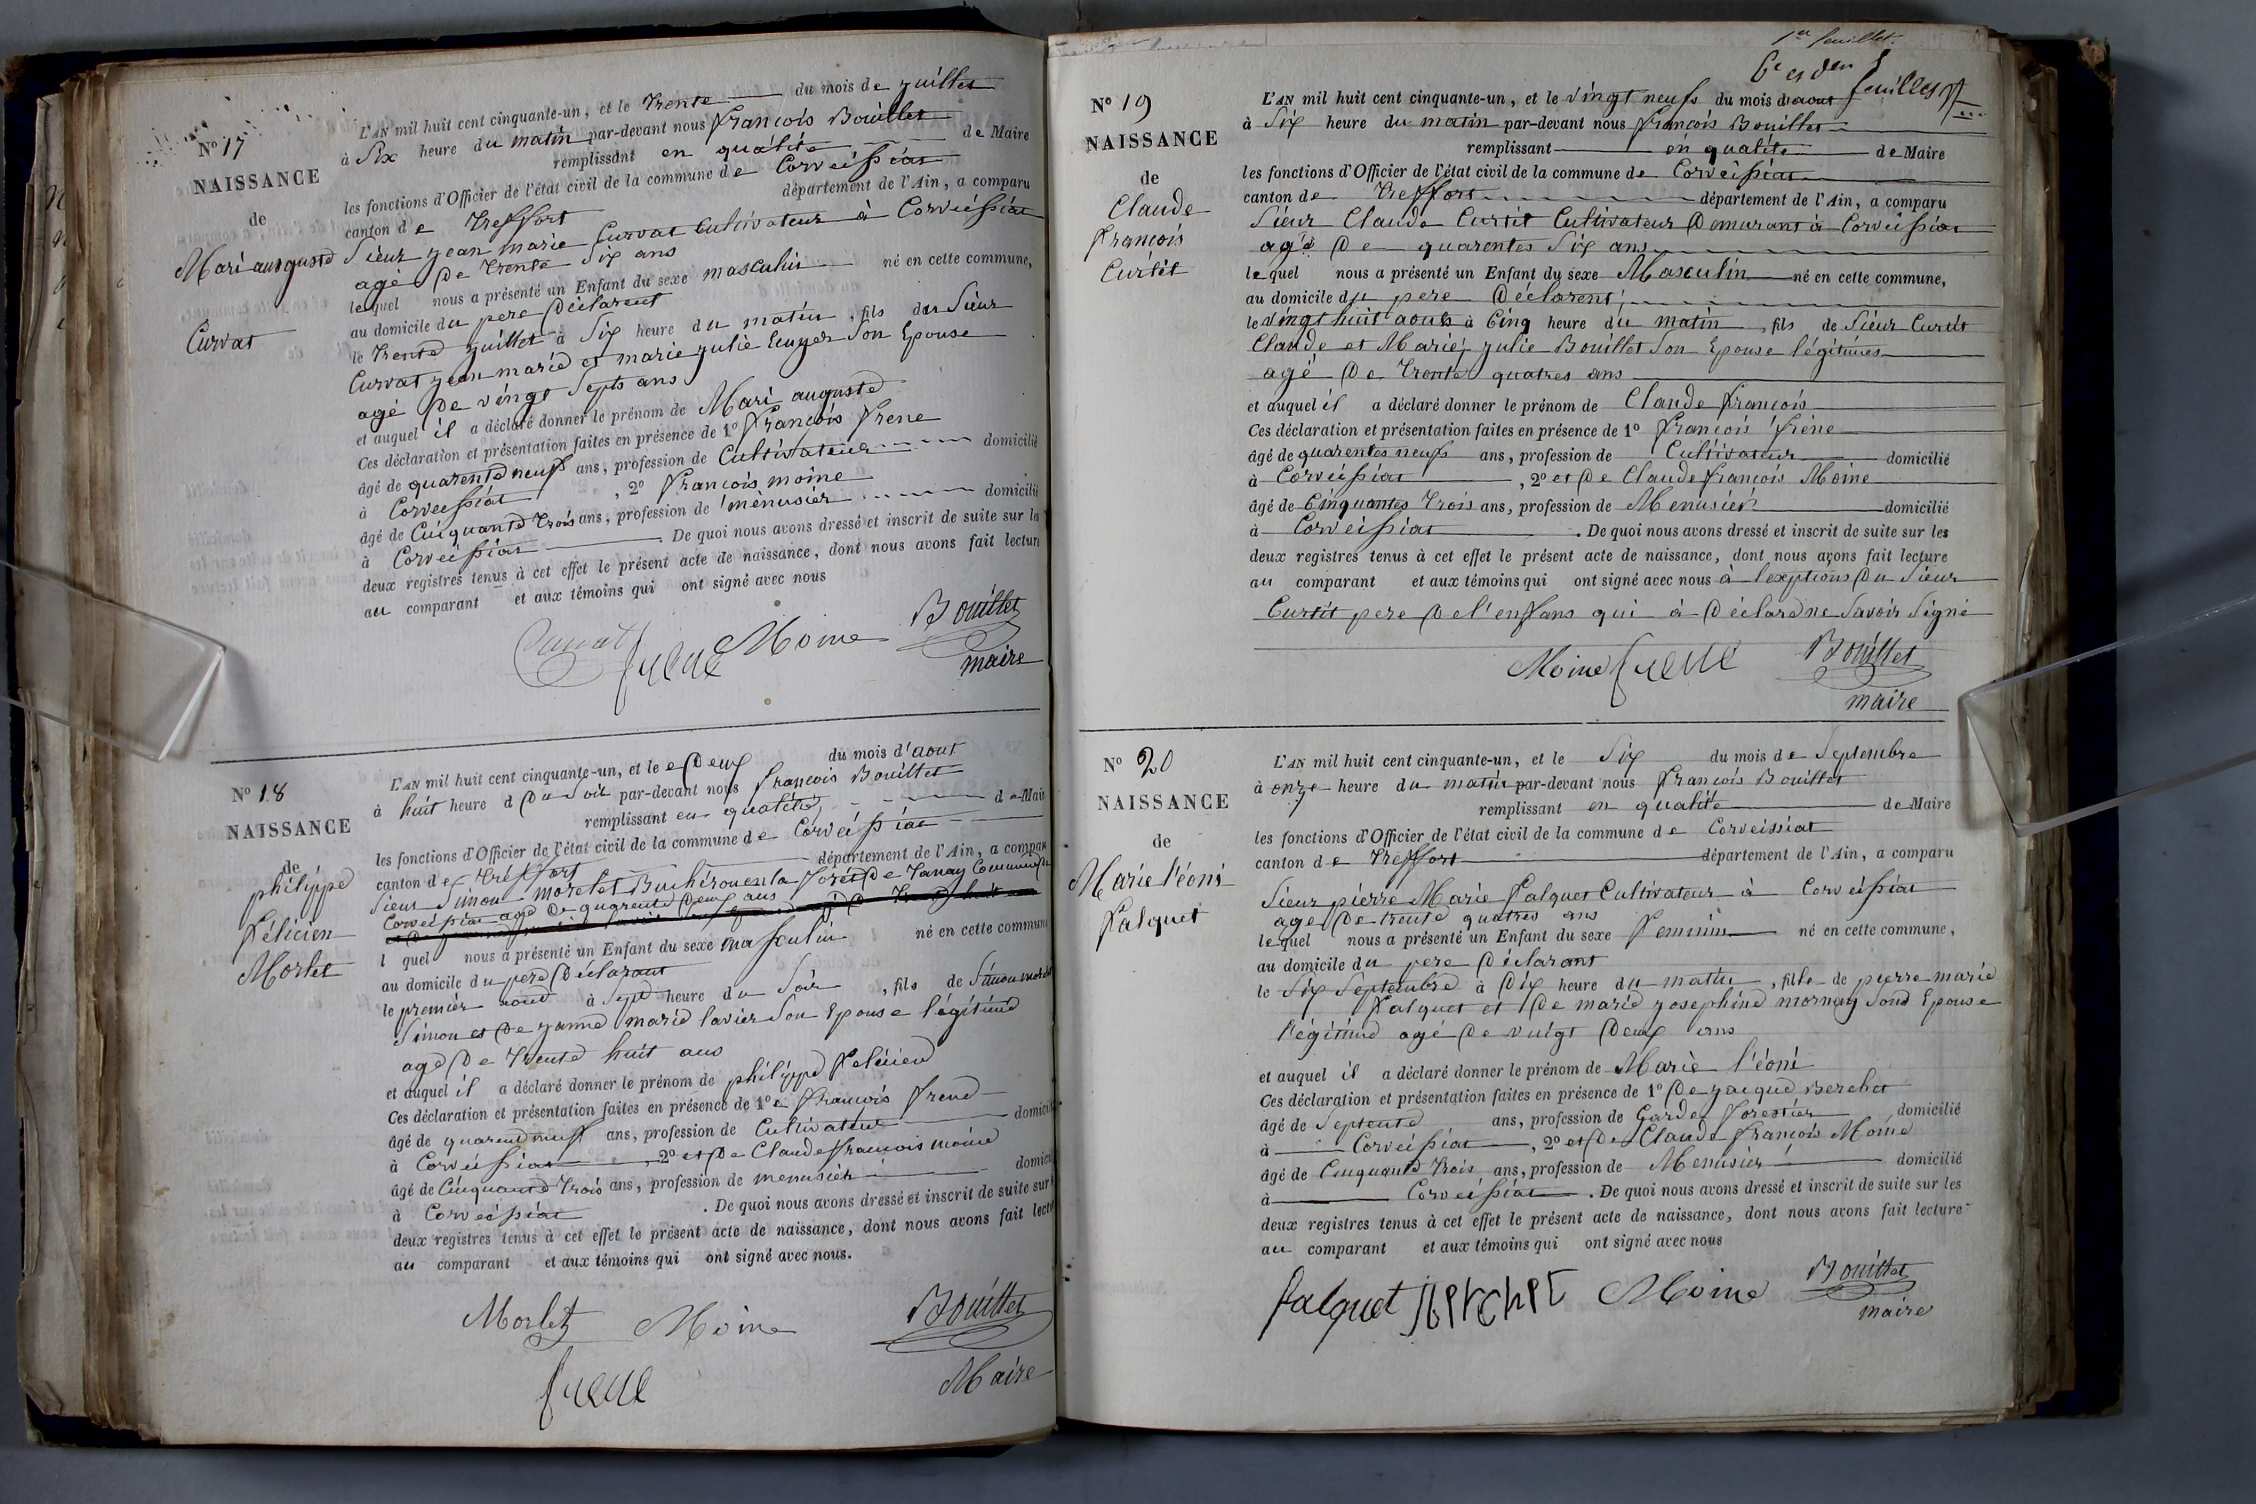 N° 17
NAISSANCE
de
Mari auguste
Curvat
L'AN mil huit cent cinquante-un, et le trente du mois de juillet
à Six heure du matin par-devant nous françois Bouillet
remplissant en qualité de Maire
les fonctions d'Officier de l'état civil de la commune de Corveissiat
canton de Treffort département de l'Ain, a comparu
Sieur jean marie Curvat Cultivateur à Corveissiat
agé De trente Six ans
lequel nous a présenté un Enfant du sexe masculin né en cette commune,
au domicile du pere Déclarent
le trente juillet à Six heure du matin, fils du Sieur
Curvat jean marie et marie julie Son Epouse
agé De vingt Septs ans
et auquel il a déclaré donner le prénom de Mari auguste
Ces déclaration et présentation faites en présence de 1° françois frene
âgé de quarente neufs ans, profession de Cultivateur domicilié
à Corveissiat, 2° françois moine
âgé de Cinquante trois ans, profession de menusier domicilié
à Corveissiat. De quoi nous avons dressé et inscrit de suite sur les
deux registres tenus à cet effet le présent acte de naissance, dont nous avons fait lecture
au comparant et aux témoins qui ont signé avec nous
Curvat frene Moine Bouillet
maire
N° 18
NAISSANCE
de
philippe
félicien
Morlet
L'AN mil huit cent cinquante-un, et le Deux du mois d'aout
à huit heure d Du Soir par-devant nous françois Bouillet
remplissant en qualité de Maire
les fonctions d'Officier de l'état civil de la commune de Corveissiat
canton de Treffort département de l'Ain, a comparu
Sieur Simon morelet forét De Commune
Corveissiat agé De quarente Deux ans
l quel nous a présenté un Enfant du sexe masculin né en cette commune
au domicile du pere Déclarant
le premier aout à Sept heure du Soir, fils de Simon
Simon et De janne marie lavier Son Epouse légitime
agé De trente huit ans
et auquel il a déclaré donner le prénom de philippe felicien
Ces déclaration et présentation faites en présence de 1° françois frene
âgé de quarente neuf ans, profession de Cultivateur domicilié
à Corveissiat, 2° et De Claude françois moine
âgé de Cinquante trois ans, profession de menusier domicilié
à Corveissiat. De quoi nous avons dressé et inscrit de suite sur
deux registres tenus à cet effet le présent acte de naissance, dont nous avons fait lecture
au comparant et aux témoins qui ont signé avec nous.
Morlet Moine Bouillet
frene Maire
1er feuillet
feuilles
N° 19
NAISSANCE
de
Claude
françois
Curtit
L'AN mil huit cent cinquante-un, et le vingt neufs du mois d'aout
à Six heure du matin par-devant nous françois Bouillet
remplissant en qualité de Maire
les fonctions d'Officier de l'état civil de la commune de Corveissiat
canton de Treffort département de l'Ain, a comparu
Sieur Claude Curtit Cultivateur Demurant à Corveissiat
agé De quarentes Six ans
lequel nous a présenté un Enfant du sexe Masculin né en cette commune,
au domicile du pere Déclarent
le vingt huit aouts à Cinq heure du matin, fils de Sieur Curtit
Claude et Marie julie Bouillet Son Epouse légitimes
agé De trente quatres ans
et auquel il a déclaré donner le prénom de Claude françois
Ces déclaration et présentation faites en présence de 1° françois frène
âgé de quarentes neufs ans, profession de Cultivateur domicilié
à Corveissiat, 2° et De Claude françois Moine
âgé de Cinquantes trois ans, profession de Menusier domicilié
à Corveissiat. De quoi nous avons dressé et inscrit de suite sur les
deux registres tenus à cet effet le présent acte de naissance, dont nous avons fait lecture
au comparant et aux témoins qui ont signé avec nous à lexptions Du Sieur
Curtit pere De l'enffans qui à Déclare ne Savoir Signé
Moine frene Bouillet
maire
N° 20
NAISSANCE
de
Marie l'éoni
falquet
L'AN mil huit cent cinquante-un, et le Six du mois de Septembre
à onze heure du matin par-devant nous françois Bouillet
remplissant en qualité de Maire
les fonctions d'Officier de l'état civil de la commune de Corveissiat
canton de Treffort département de l'Ain, a comparu
Sieur pierre Marie falquet Cultivateur à Corveissiat
age De trente quatres ans
lequel nous a présenté un Enfant du sexe feminin né en cette commune,
au domicile du pere Déclarant
le Six Septembre à Dix heure du matin, fille de pierre marie
falquet et De marie josephine mornay Son Epouse
légitime agé De vuigt Deux ans
et auquel il a déclaré donner le prénom de Marie l'éoni
Ces déclaration et présentation faites en présence de 1° De jacque Berchet
âgé de Septente ans, profession de Garde forestier domicilié
à Corveissiat, 2° et De Claude françois Moine
âgé de Cinquante trois ans, profession de Menusier domicilié
à Corveissiat. De quoi nous avons dressé et inscrit de suite sur les
deux registres tenus à cet effet le présent acte de naissance, dont nous avons fait lecture
au comparant et aux témoins qui ont signé avec nous
falquet Berchet Moine Bouillet
maire